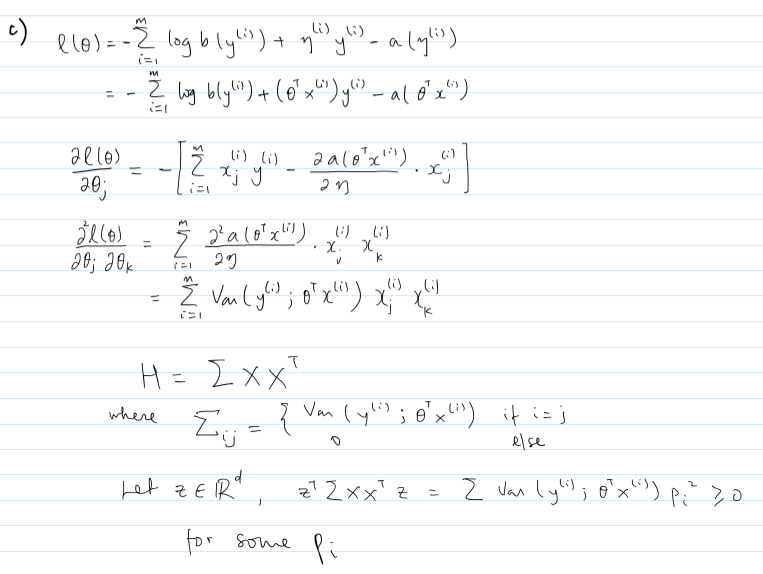 c) ℓ(θ) = - Σ_{i=1}^{m} log b(y^{(i)}) + η^{(i)} y^{(i)} - a(η^{(i)})
= - Σ_{i=1}^{m} log b(y^{(i)}) + (θ^T x^{(i)}) y^{(i)} - a(θ^T x^{(i)})
∂ℓ(θ)/∂θ_j = - [ Σ_{i=1}^{m} x_j^{(i)} y^{(i)} - ∂a(θ^T x^{(i)})/∂η · x_j^{(i)} ]
∂²ℓ(θ)/∂θ_j ∂θ_k = Σ_{i=1}^{m} ∂²a(θ^T x^{(i)})/∂η · x_j^{(i)} x_k^{(i)}
= Σ_{i=1}^{m} Var(y^{(i)}; θ^T x^{(i)}) x_j^{(i)} x_k^{(i)}
H = Σ X X^T
where Σ_{ij} = { Var(y^{(i)}; θ^T x^{(i)}) if i=j
0 else
Let z ∈ ℝ^d, z^T Σ X X^T z = Σ Var(y^{(i)}; θ^T x^{(i)}) p_i² ≥ 0
for some p_i